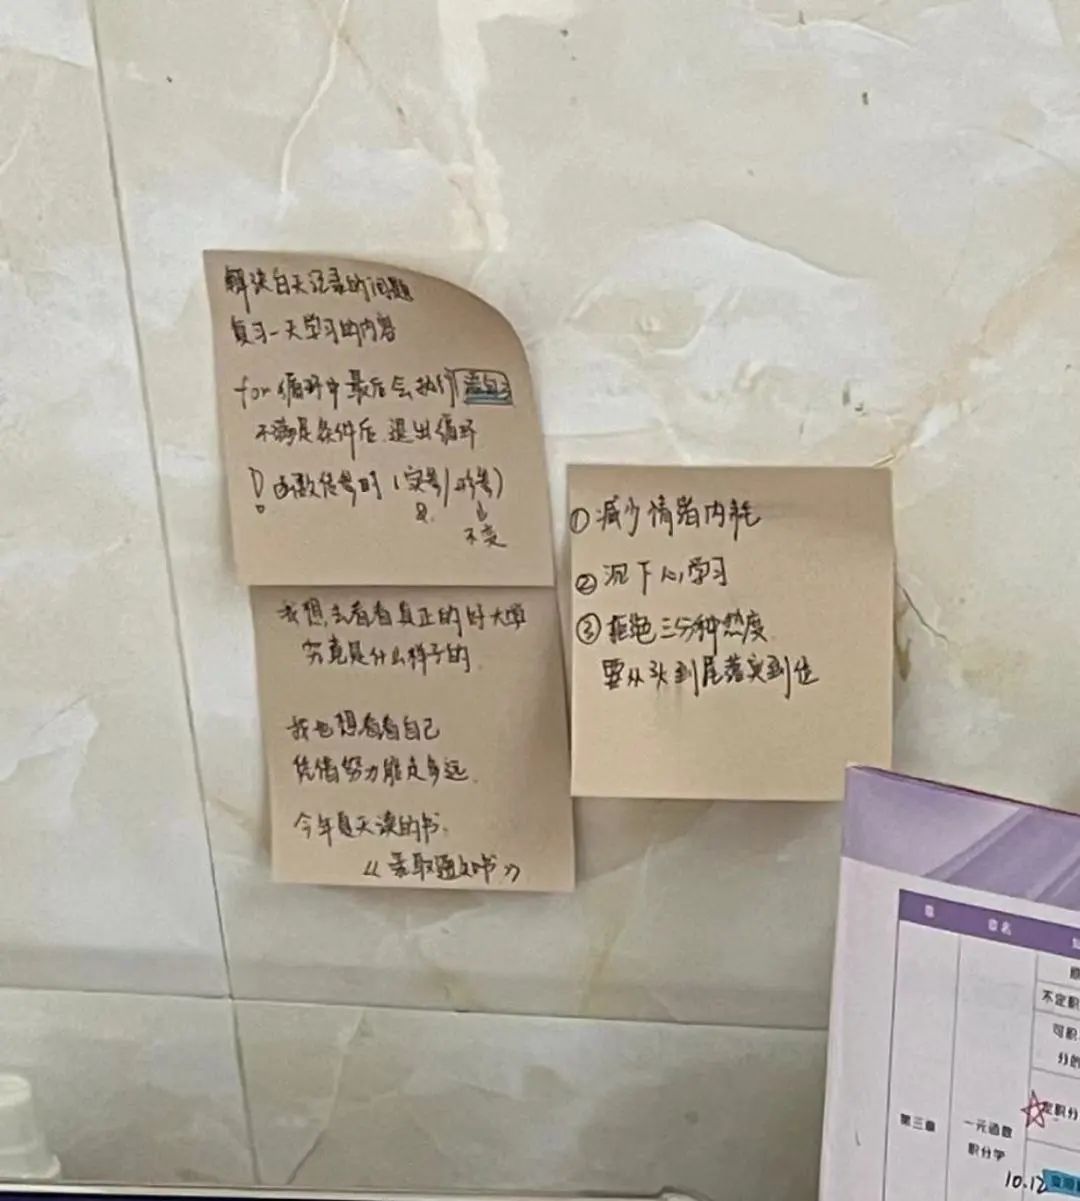 解决白天记录的问题
复习一天学习的内容
for循环中最后会执行
不满足条件后 退出循环
! 函数传参时(实参/形参)
&
不变
我想去看看真正的好大学
究竟是什么样子的.
我也想看看自己
凭借努力能走多远.
今年夏天读的书.
《录取通知书》
①减少情绪内耗
②沉下心学习
③拒绝三分钟热度
要从头到尾落实到位
章
章名
不定积
可积
分的
☆定积分
第三章
一元函数
积分学
10.12